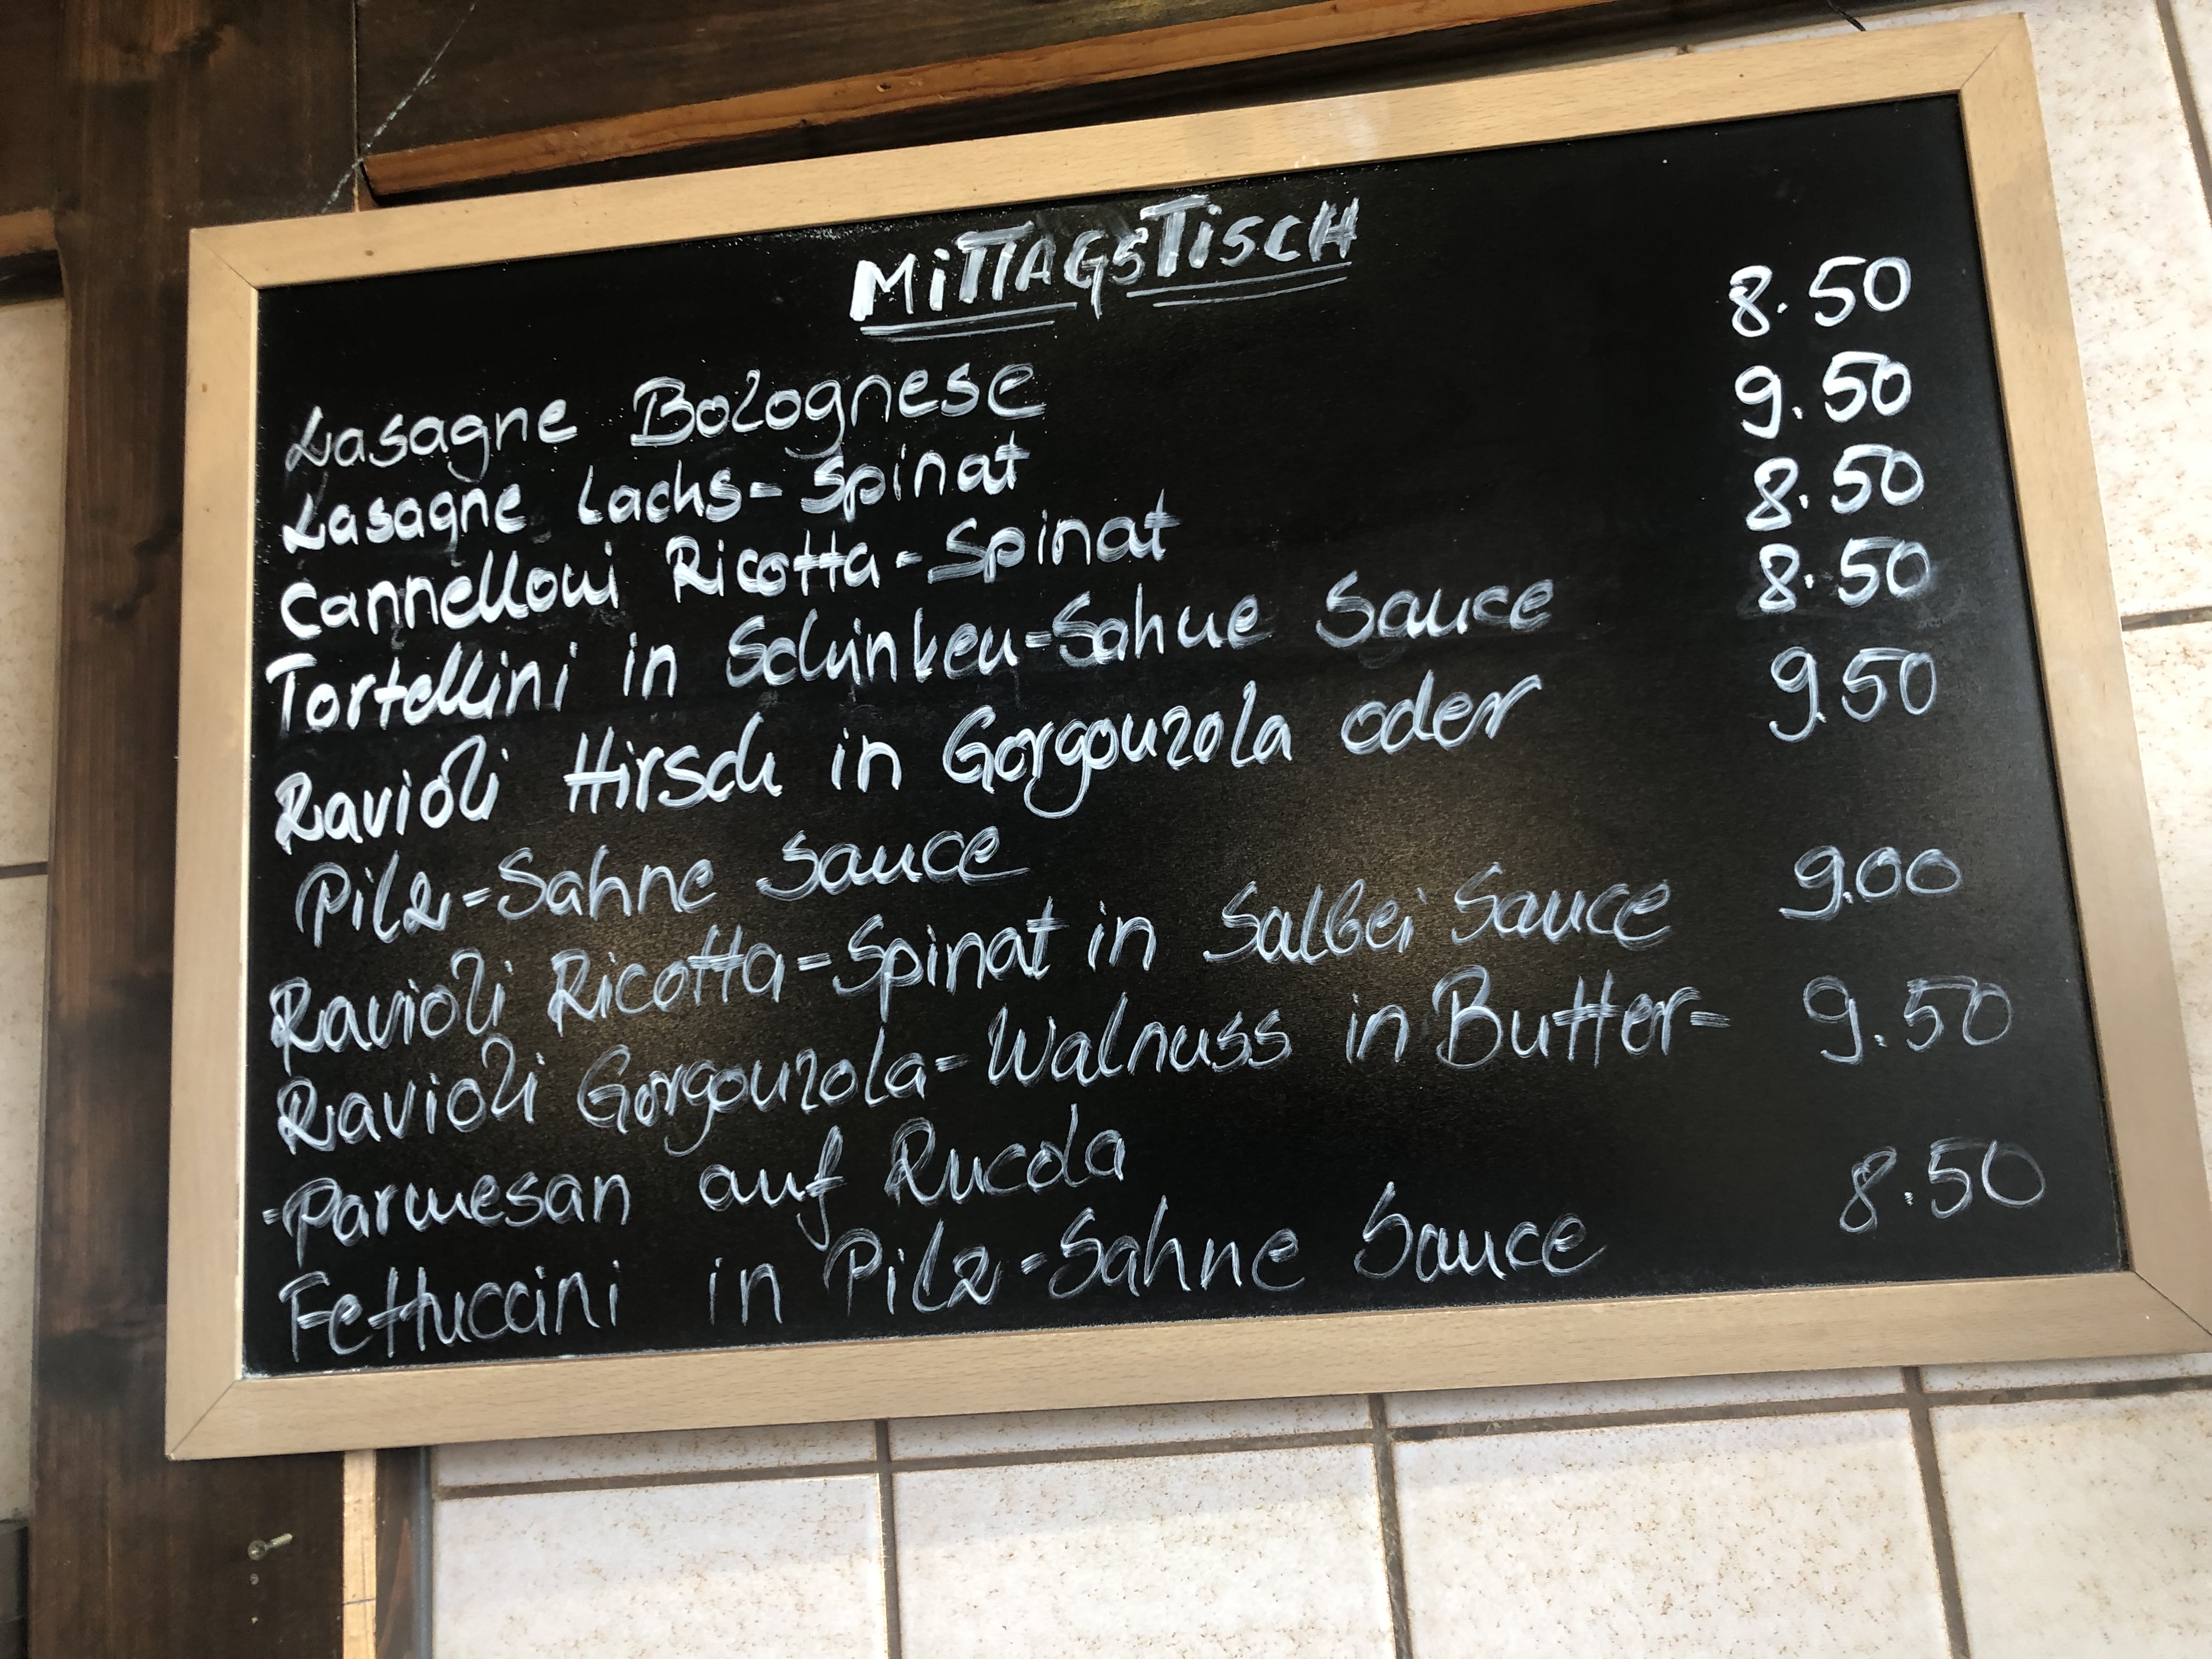 MiTTAGSTiSCH
Lasagne Bolognese 8.50
Lasagne Lachs-Spinat 9.50
Cannelloni Ricotta-Spinat 8.50
Tortellini in Schinken-Sahne Sauce 8.50
Ravioli Hirsch in Gorgonzola oder 9.50
Pilz-Sahne Sauce
Ravioli Ricotta-Spinat in Salbei Sauce 9.00
Ravioli Gorgonzola-Walnuss in Butter- 9.50
-Parmesan auf Rucola
Fettuccini in Pilz-Sahne Sauce 8.50